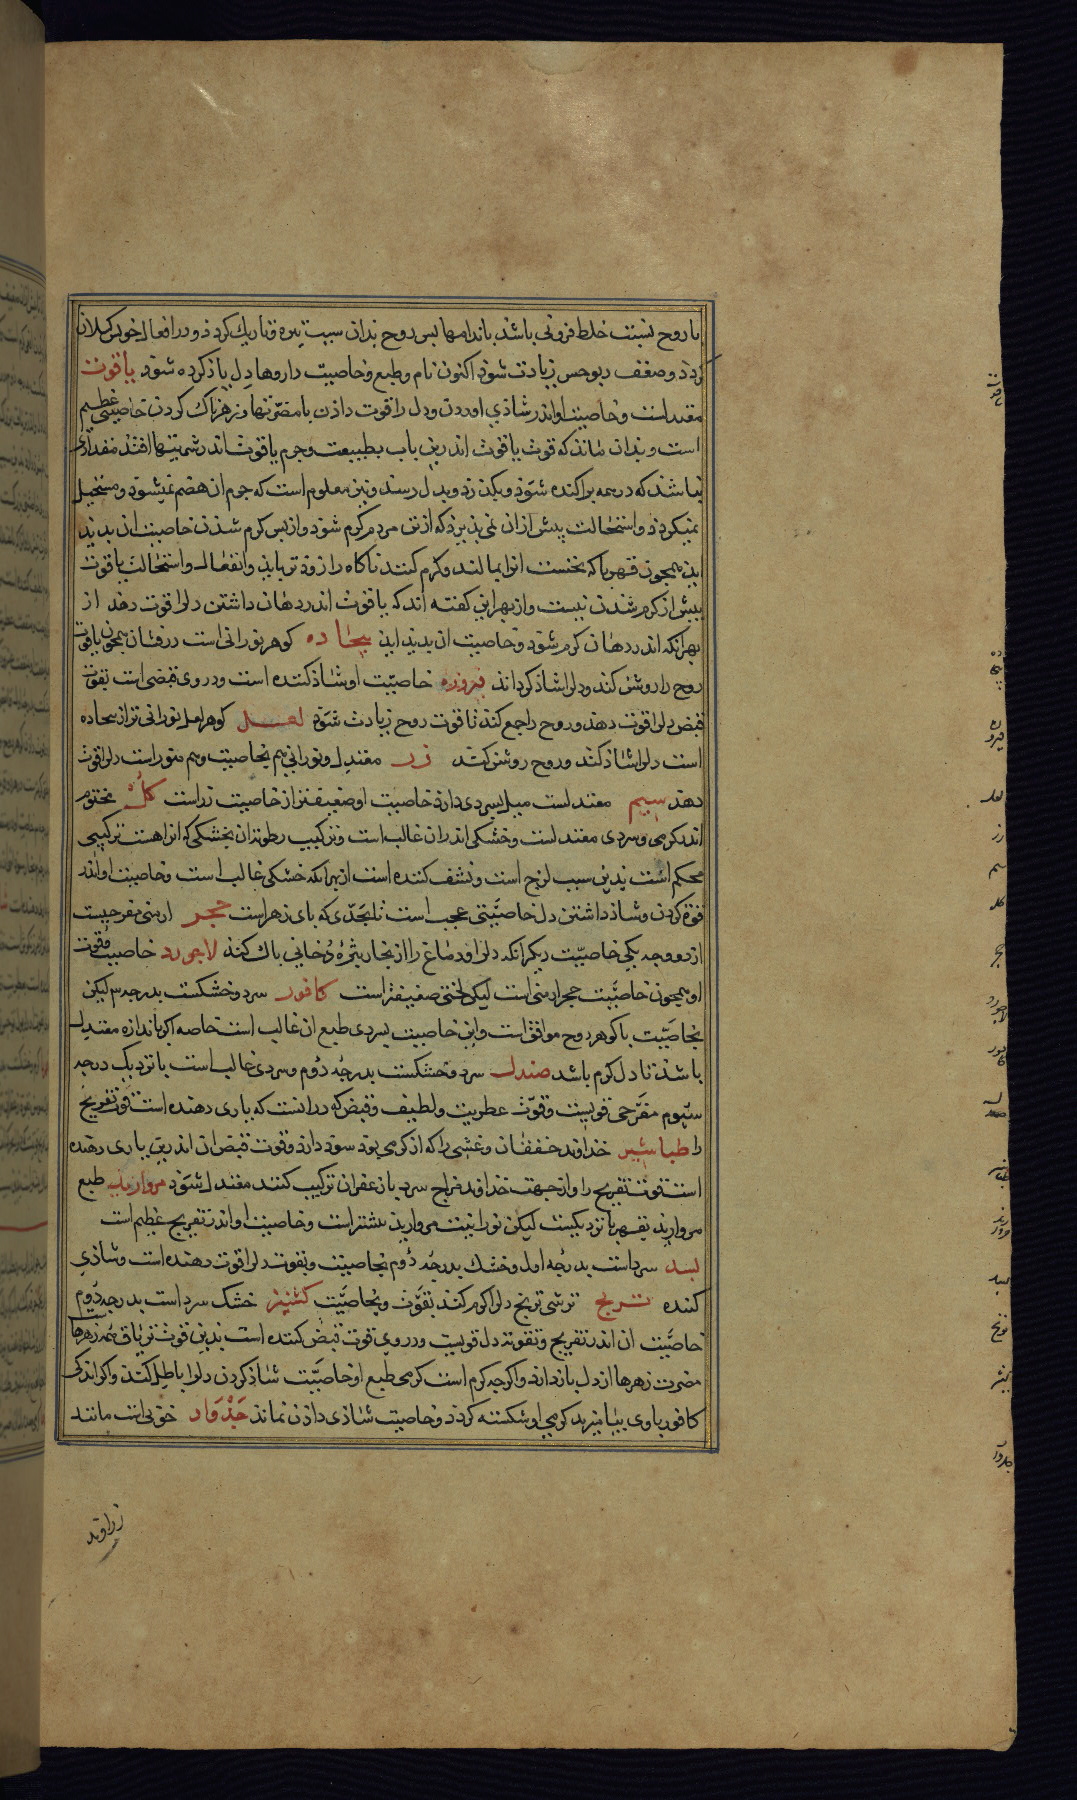 با روح نسبت خلط فزونی باشد باندامها بس روح بدان سبب تیره و تاریک کردذ و در افعال خویش کسلان
کردذ و ضعف دیو حس زیادت شوذ اکنون نام و طبع و خاصیت داروها دل یاذ کرده شوذ یاقوت
معتدلست و خاصیت او اندر شاذی اوردن و دل را قوت داذن با مضرتها و زهر پاک کردن خاصیتی عظیم
است و بدان ماند که قوت یاقوت اندرین باب بطبیعت و جرم یاقوت اندر شمیتها افتد مقداری
نباشد که در همه براکنده شوذ و بکذرذ و بدل رسد و نیز معلوم است که جرم ان هضم نمیشوذ و مستحیل
نمیکردذ و استحالت بیش از ان نمی بذیرذ که از تن مردم کرم شوذ و از بس کرم شدن خاصیت ان بدید
اید همجون قهربا که نخست انرا بمالند و کرم کنند تا کاه را زوذتر رباید و انفعال و استحالت یاقوت
بیش از کرم شدن نیست و از بهر این کفته اند که یاقوت اندر دهان داشتن دلرا قوت دهد از
بهر انکه اندر دهان کرم شوذ و خاصیت ان بدید اید بیجاده کوهر نورانی است درفشان همجون یاقوت
روح را روشن کند و دلرا شاذ کرداند فیروزه خاصیت او شاذ کننده است و در وی قبضی است بقوت
قبض دلرا قوت دهد و روح را جمع کند تا قوت روح زیادت شوذ لعل کوهر لعل نورانی تر از بیجاده
است دلرا شاذ کند و روح روشن کند زر معتدل و نورانی هم بخاصیت و هم بنور است دلرا قوت
دهد سیم معتدلست میل بسردی دارذ خاصیت او ضعیفتر از خاصیت زر است کل مختوم
اندر کرمی و سردی معتدلست و خشکی اندر ان غالب است و ترکیب رطوبت ان بخشکی که انرا هست ترکیبی
محکم است بدین سبب لزج است و نشف کننده است از بهر انکه خشکی غالب است و خاصیت او اندر
قوة کردن و شاذ داشتن دل خاصیتی عجب است تا بحدی که بای زهر است حجر ارمنی مفرحیست
از دو وجه یکی خاصیت دیکر انکه دلرا و دماغ را از بخار تیره دخانی باک کند لاجورد خاصیت و قوت
او همجون خاصیت حجر ارمنی است لیکن لختی ضعیفتر است کافور سرد و خشکست بدرجه سم لیکن
بخاصیت با کوهر روح موافق است و این خاصیت بسردی طبع ان غالب است خاصه اکر باندازه معتدل
باشذ تا دل کرم باشد صندل سرد و خشکست بدرجه دوم و سردی غالب است با نزدیک درجه
سیوم مفرحی قویست و قوت عطریت و لطیف و قبض که در انست که یاری دهنده است قوت تفریح
را طباشیر خداوند خفقان و غشی را که از کرمی بود سوذ دارذ و قوت قبض ان اندرین یاری دهنده
است قوت تفریح را و از جهت خداوند مزاج سرد با زعفران ترکیب کنند معتدل شوذ مروارید طبع
مروارید بقهربا نزدیکست لیکن نورانیت مروارید بیشتر است و خاصیت او اندر تفریح عظیم است
بسد سرد است بدرجه اول و خشک بدرجه دوم بخاصیت و بقوت دلرا قوت دهنده است و شاذی
کننده ترنج ترشی ترنج دلرا کرم کند بقوت و بخاصیت کشنیز خشک سرد است بدرجه دوم
خاصیت ان اندر تفریح و تقویة دل قویست و در وی قوت قبض کننده است بدین قوت تریاق همه زهرهاست
مضرت زهرها از دل بازدارذ و اکرجه کرم است کرمی طبع او خاصیت شاذ کردن دلرا باطل کند و اکر اندکی
کافور با وی بیامیزند کرمی او شکسته کردذ و خاصیت شاذی داذن نماند جذوار خونی است مانند
زراوند
یاقوت
بیجاده
فیروزه
لعل
زر
سیم
کل
حجر
لاجورد
کافور
صندل
طباشیر
مروارید
بسد
ترنج
جدوار